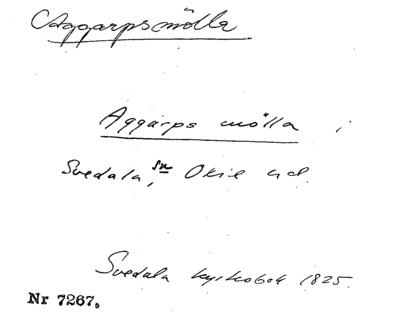 Aggarpsmölla
Aggarps mölla i
Svedala, sn Oxie hd.
Svedala kyrkobok 1825.
Nr 7267.